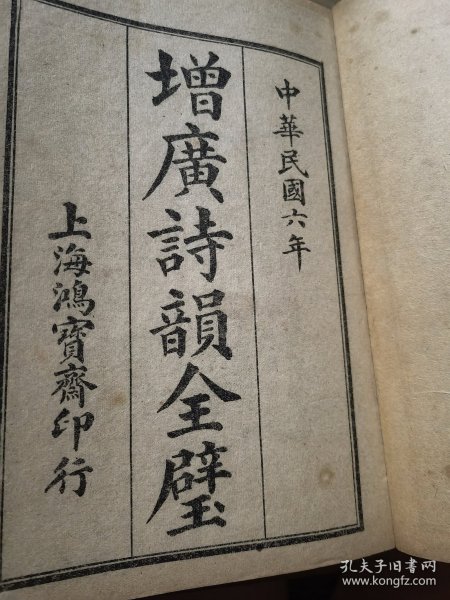 中華民國六年
增廣詩韻全璧
上海鴻寶齋印行
孔夫子旧书网
www.kongfz.com